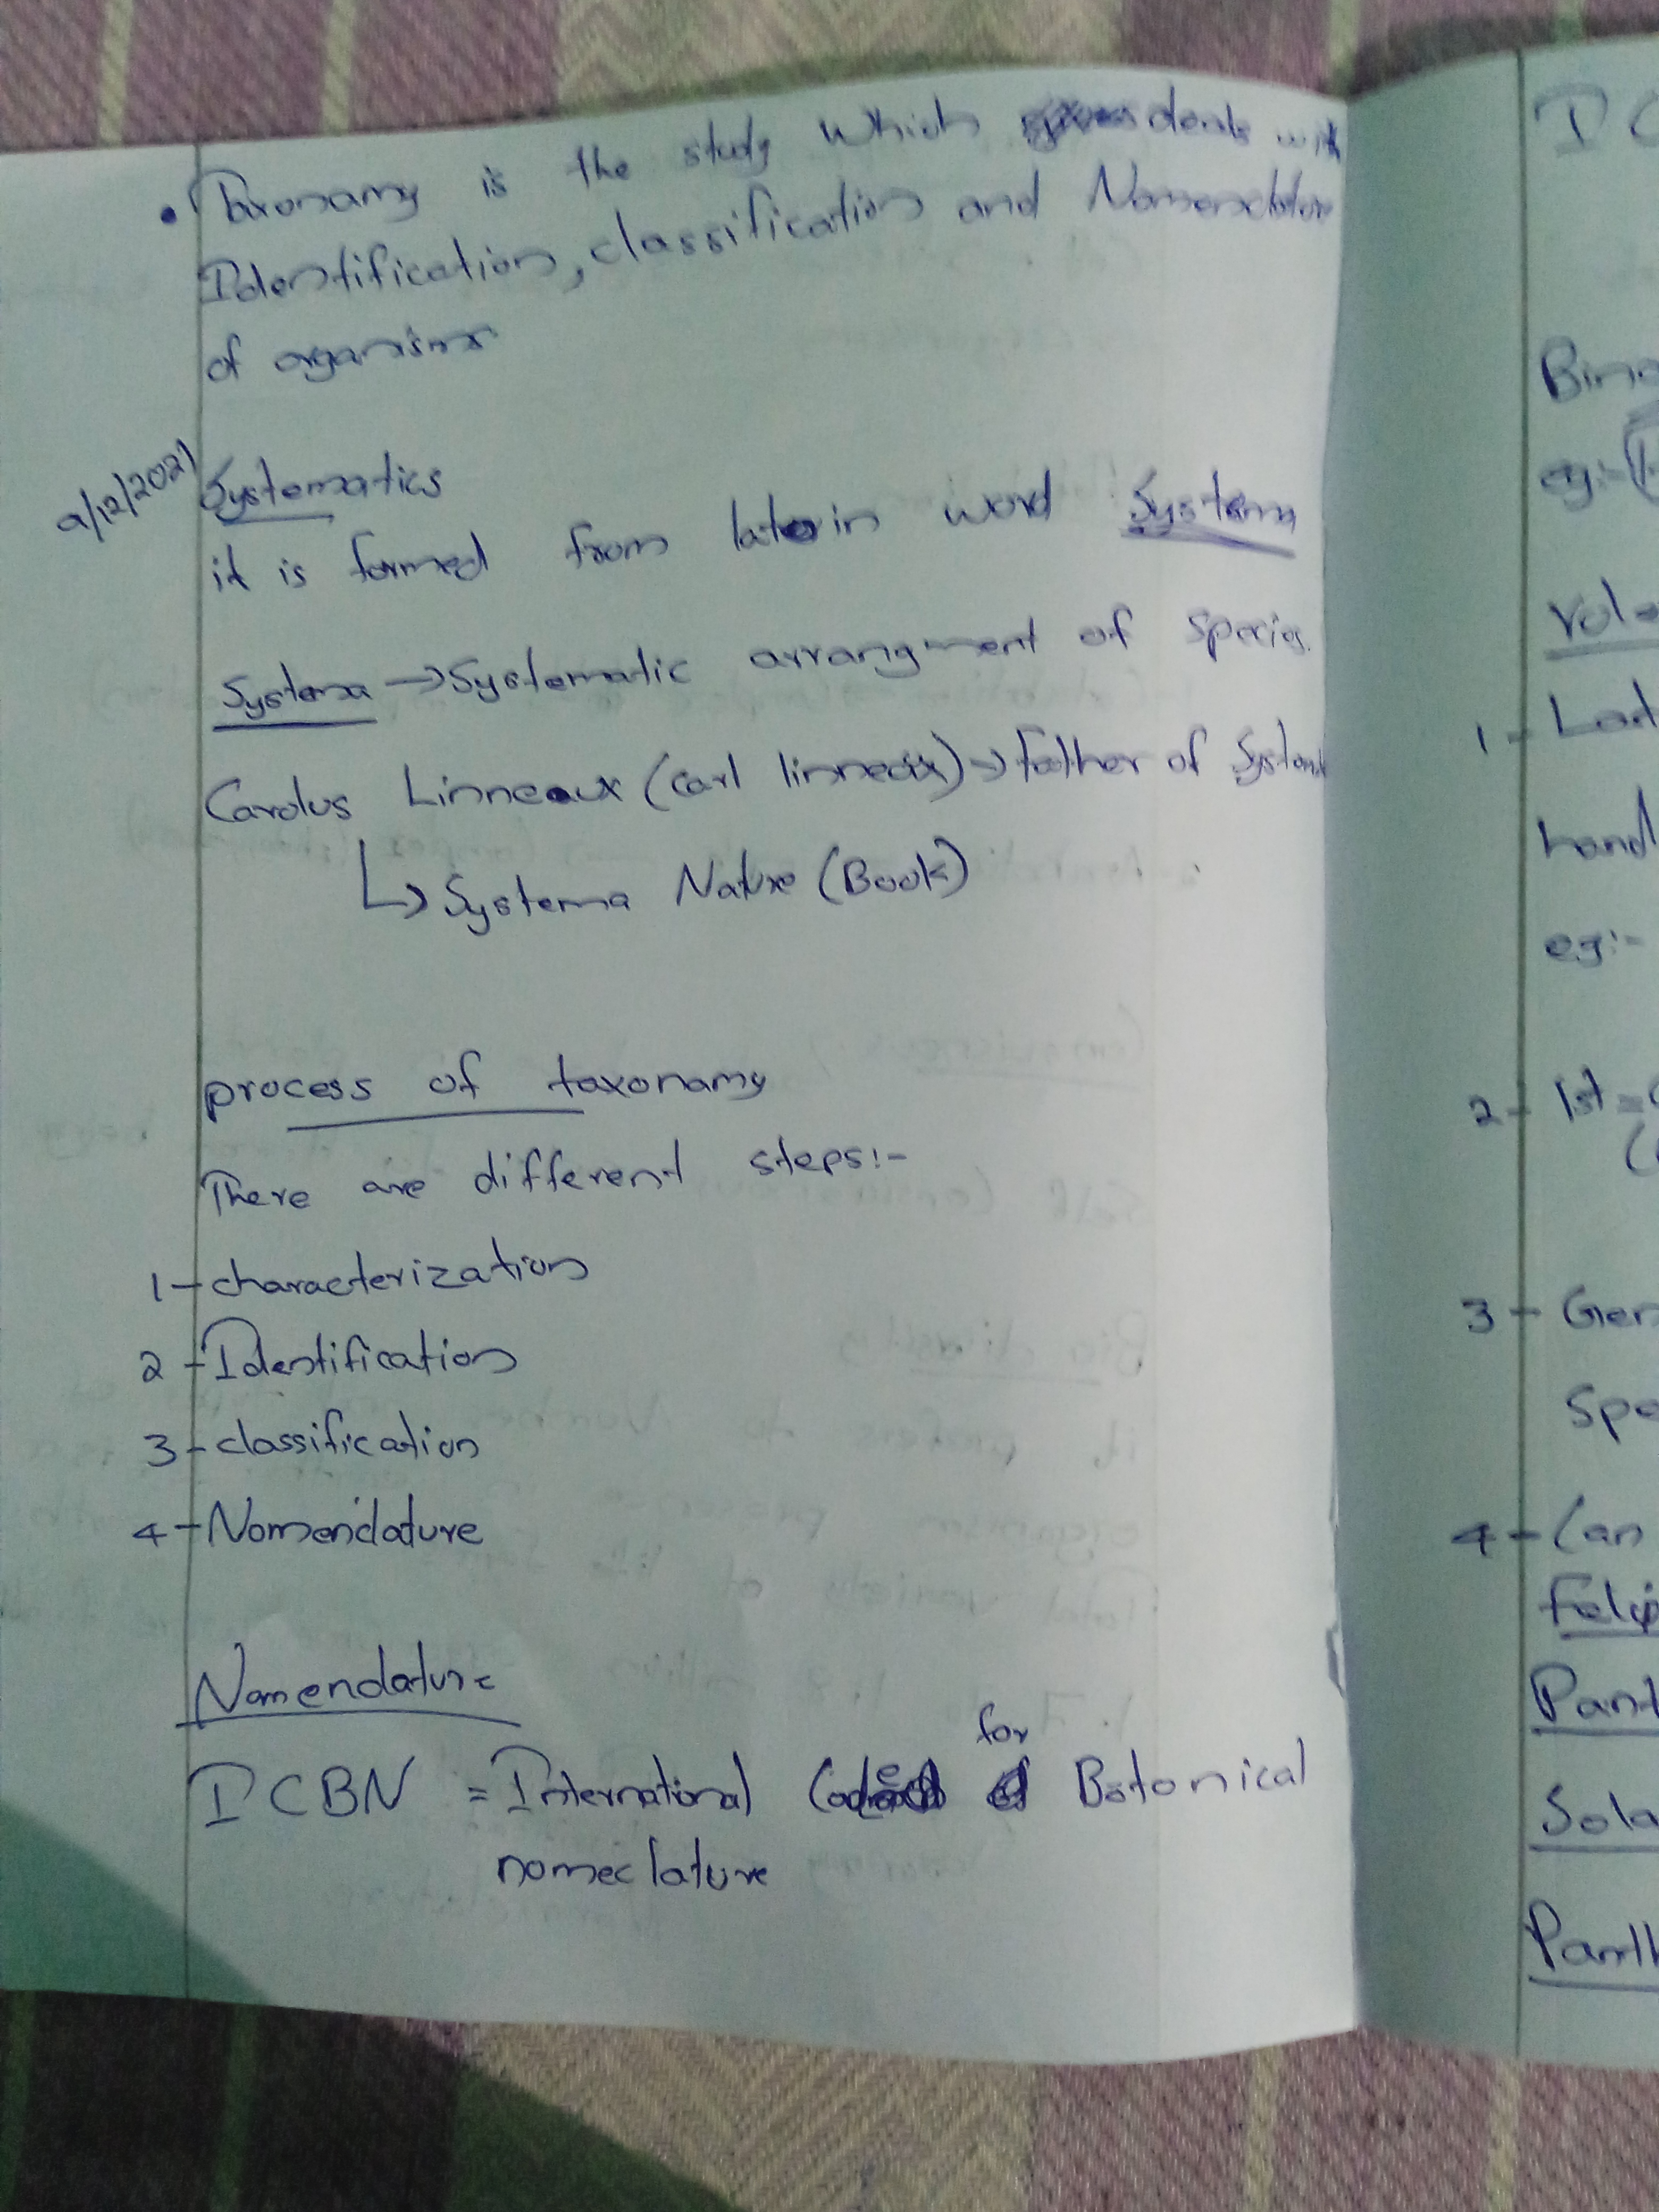 • Taxonamy is the study which deals with
Identification, classification and Nomenclature
of organisms
9/12/2021 Systematics
it is formed from latin word Systema
Systema → Systematic arrangment of species.
Carolus Linneaux (carl linneax) → Father of System
↳ Systema Nature (Book)
process of taxonamy
There are different steps:-
1 - characterization
2 - Identification
3 - classification
4 - Nomenclature
Nomenclature
ICBN = International Code for Botonical
nomeclature
I C
Bino
eg:-
1 - Lat
hand
eg:-
2 - 1st =
3 - Gen
Spe
4 - Can
Felis
Pant
Sola
Panth